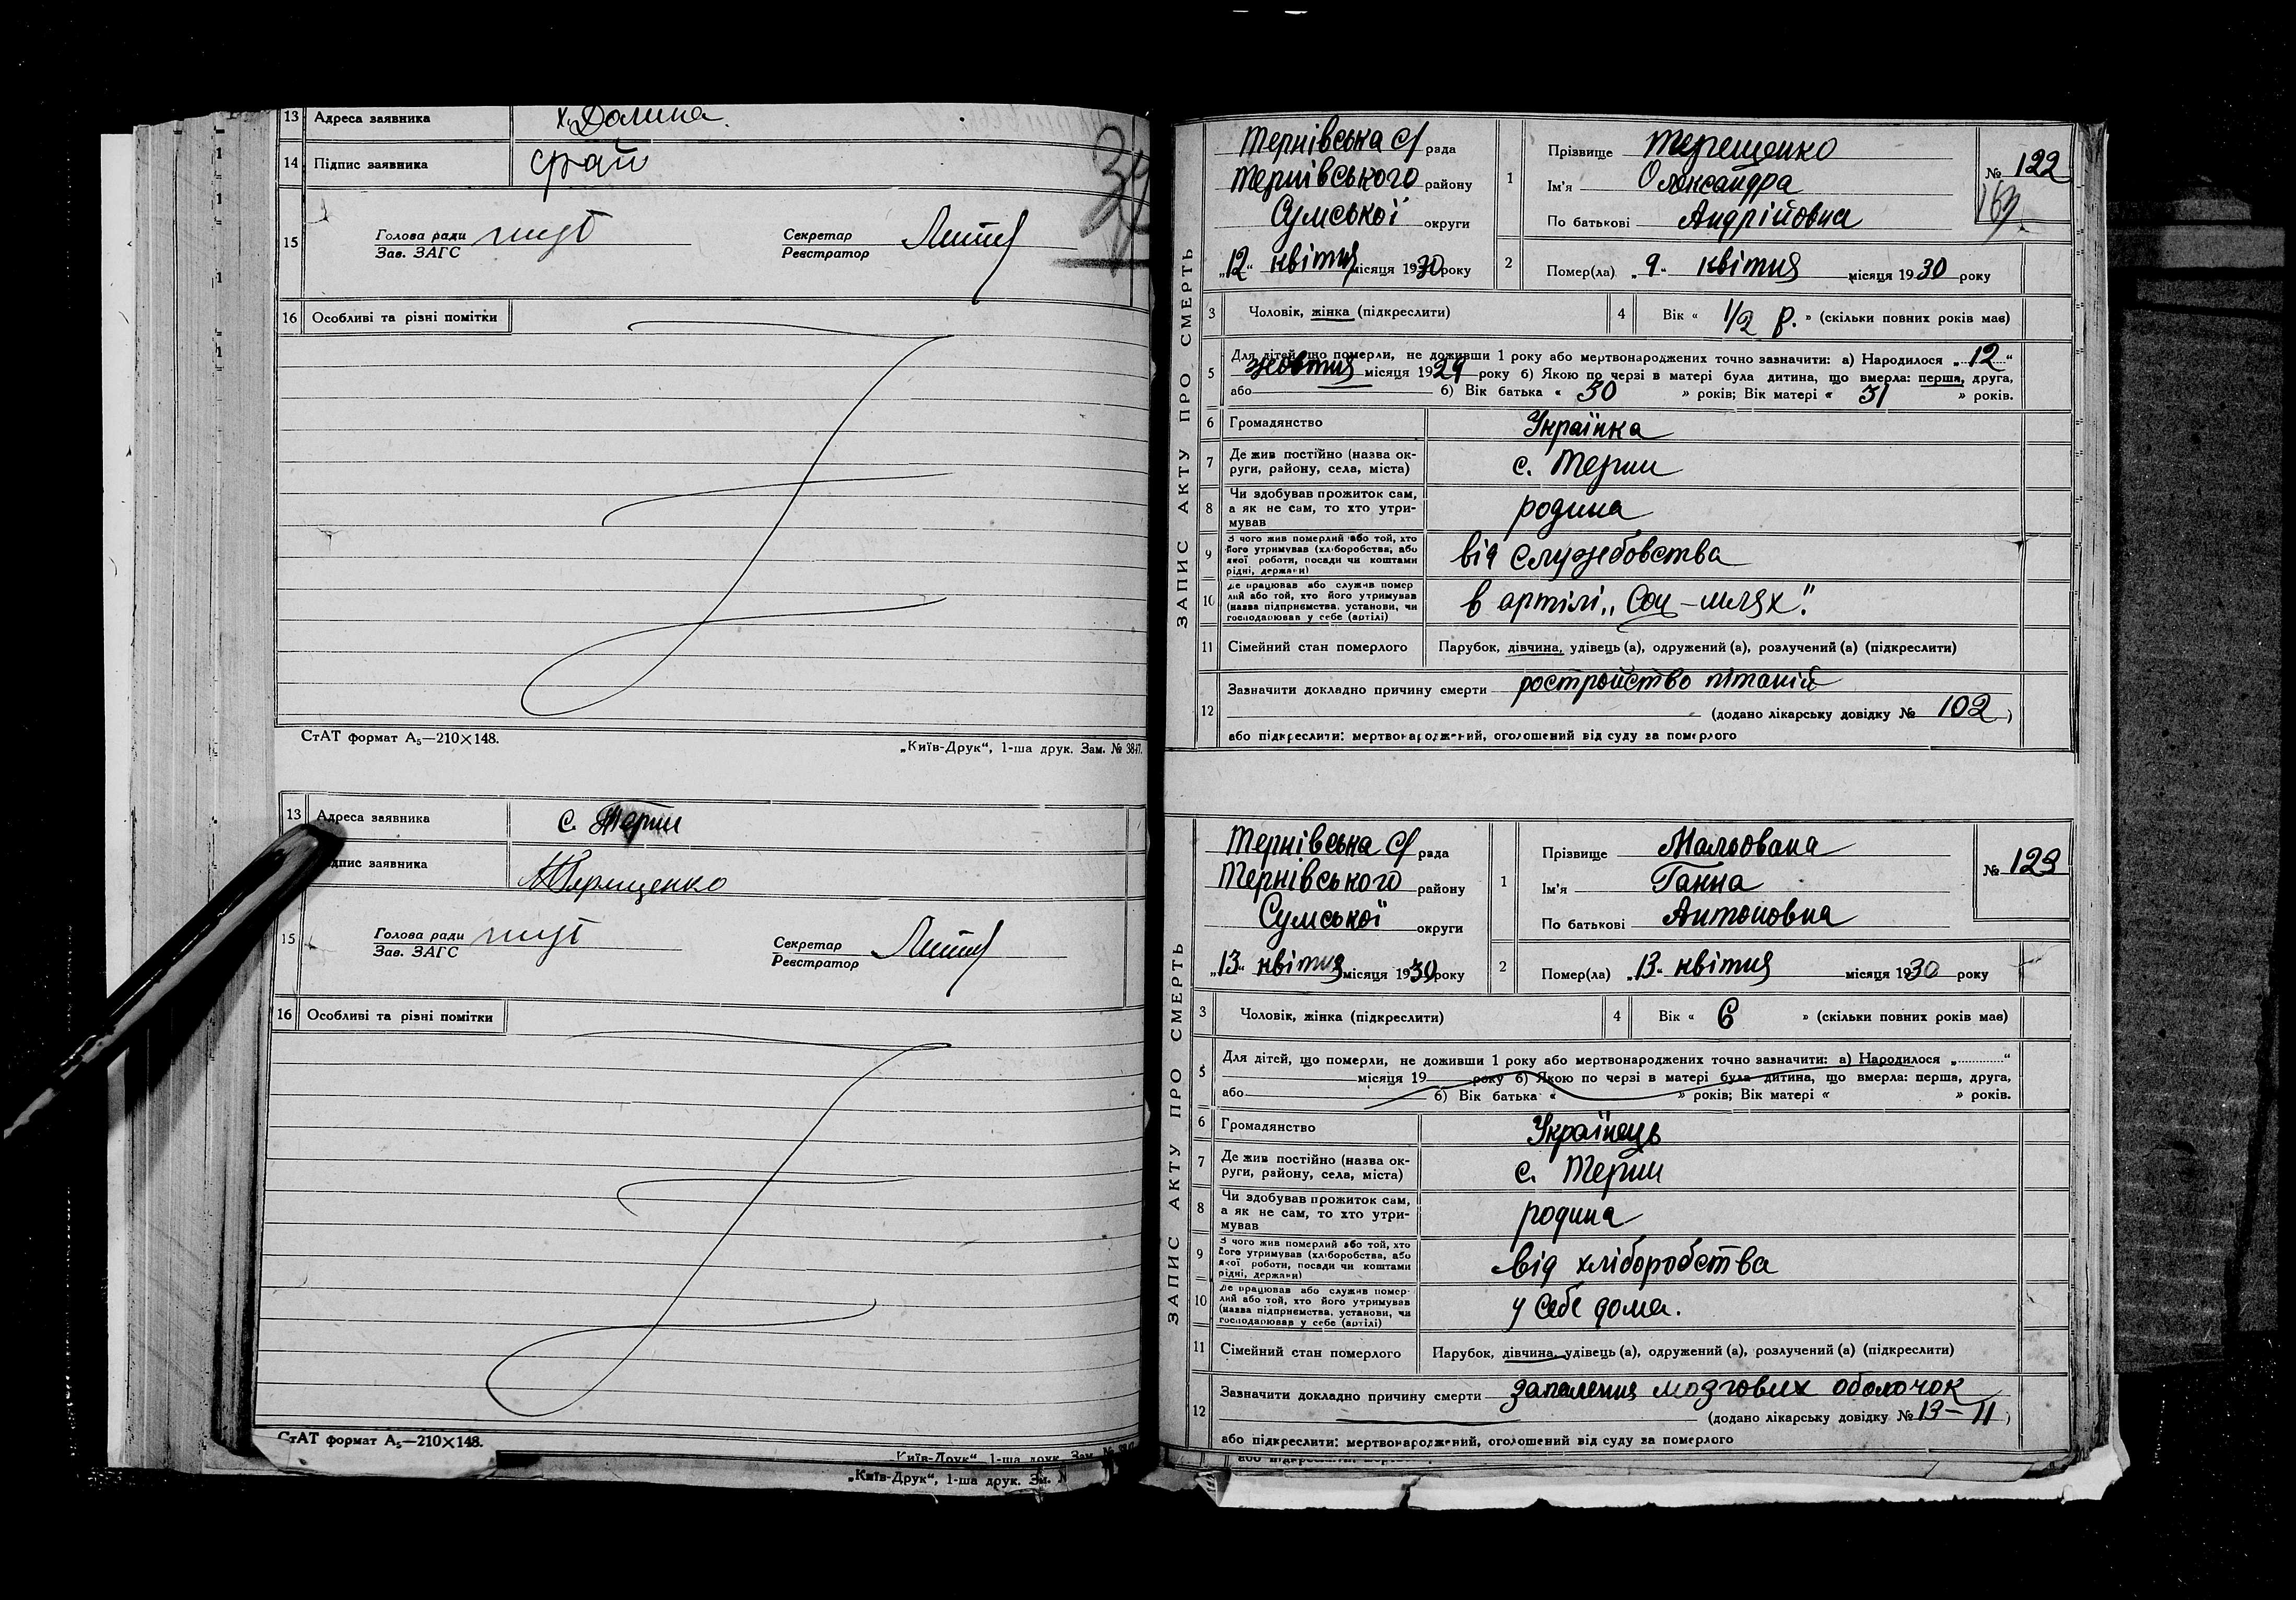 13 Адреса заявника х. Долина.
14 Підпис заявника
15 Голова ради
Зав. ЗАГС
Секретар
Реєстратор
16 Особливі та різні помітки
СтАТ формат А₅—210×148.
„Київ-Друк“, 1-ша друк. Зам. № 3847.
13 Адреса заявника с. Терни
підпис заявника Терещенко
15 Голова ради
Зав. ЗАГС
Секретар
Реєстратор
16 Особливі та різні помітки
СтАТ формат А₅—210×148.
Київ-Друк“, 1-ша друк. Зам. №
„Київ-Друк“, 1-ша друк. Зам. №
ЗАПИС АКТУ ПРО СМЕРТЬ
Тернівська с/ рада
Тернівського району
Сумської округи
„12“ квітня місяця 1930 року
1 Прізвище Терещенко
Ім'я Олександра
По батькові Андрійовна
№ 122
2 Помер(ла) „9“ квітня місяця 1930 року
3 Чоловік, жінка (підкреслити)
4 Вік « 1/2 р. » (скільки повних років має)
5 Для дітей, що померли, не доживши 1 року або мертвонароджених точно зазначити: а) Народилося „12“
жовтня місяця 1929 року б) Якою по черзі в матері була дитина, що вмерла: перша, друга,
або б) Вік батька « 30 » років; Вік матері « 31 » років.
6 Громадянство Українка
7 Де жив постійно (назва ок-
руги, району, села, міста) с. Терни
8 Чи здобував прожиток сам,
а як не сам, то хто утри-
мував родина
9 З чого жив померлий або той, хто
його утримував (хліборобства, або
якої роботи, посади чи коштами
рідні, держави) від службовства
10 Де працював або служив помер
лий або той, хто його утримував
(назва підприємства, установи, чи
господарював у себе (артілі) в артілі „Соц-шлях“.
11 Сімейний стан померлого Парубок, дівчина, удівець (а), одружений (а), розлучений (а) (підкреслити)
12 Зазначити докладно причину смерти ростройство пітаній
(додано лікарську довідку № 102)
або підкреслити: мертвонароджений, оголошений від суду за померлого
ЗАПИС АКТУ ПРО СМЕРТЬ
Тернівська с/ рада
Тернівського району
Сумської округи
„13“ квітня місяця 1930 року
1 Прізвище Мальована
Ім'я Ганна
По батькові Антоновна
№ 123
2 Помер(ла) „13“ квітня місяця 1930 року
3 Чоловік, жінка (підкреслити)
4 Вік « 6 » (скільки повних років має)
5 Для дітей, що померли, не доживши 1 року або мертвонароджених точно зазначити: а) Народилося „ “
місяця 19 року б) Якою по черзі в матері була дитина, що вмерла: перша, друга,
або б) Вік батька « » років; Вік матері « » років.
6 Громадянство Українець
7 Де жив постійно (назва ок-
руги, району, села, міста) с. Терни
8 Чи здобував прожиток сам,
а як не сам, то хто утри-
мував родина
9 З чого жив померлий або той, хто
його утримував (хліборобства, або
якої роботи, посади чи коштами
рідні, держави) від хліборобства
10 Де працював або служив помер-
лий або той, хто його утримував
(назва підприємства, установи, чи
господарював у себе (артілі) у себе дома.
11 Сімейний стан померлого Парубок, дівчина, удівець (а), одружений (а), розлучений (а) (підкреслити)
12 Зазначити докладно причину смерти запалення мозгових оболочок
(додано лікарську довідку № 13-II)
або підкреслити: мертвонароджений, оголошений від суду за померлого